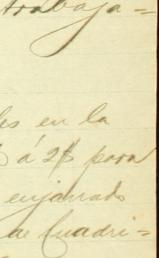 trabaja=
les en la
á 2$ para
enjarrado
de Cuadri=